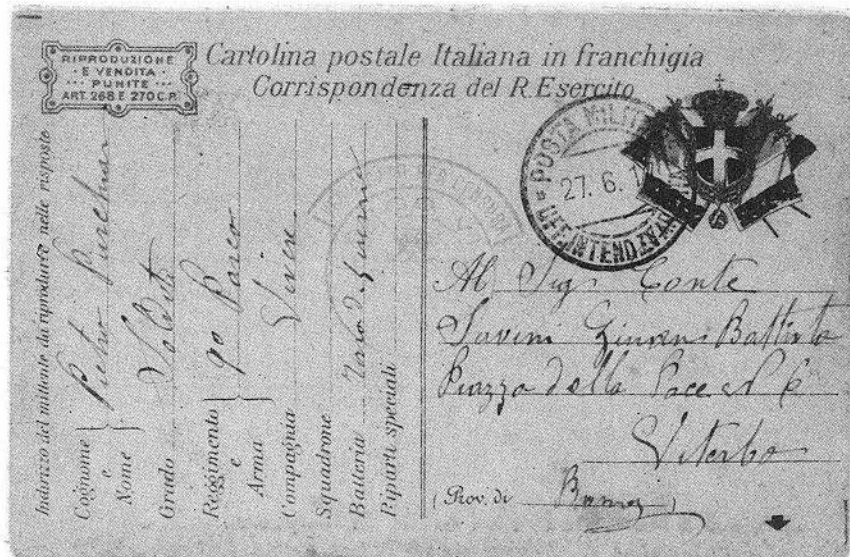 RIPRODUZIONE
E VENDITA
PUNITE
ART. 268 E 270 C.P.
Cartolina postale Italiana in franchigia
Corrispondenza del R. Esercito
POSTA MILITARE
27. 6. 1
UFF. INTENDENZA
Indirizzo del mittente da riprodurre nelle risposte
Cognome e Nome Pietro
Grado Soldato
Reggimento e Arma 9o Parco
Compagnia Viveri
Squadrone
Batteria Zona di guerra
Riparti speciali
Al Sigr Conte
Savini Battista
Piazza della Pace N 6
Viterbo
(Prov. di Roma)